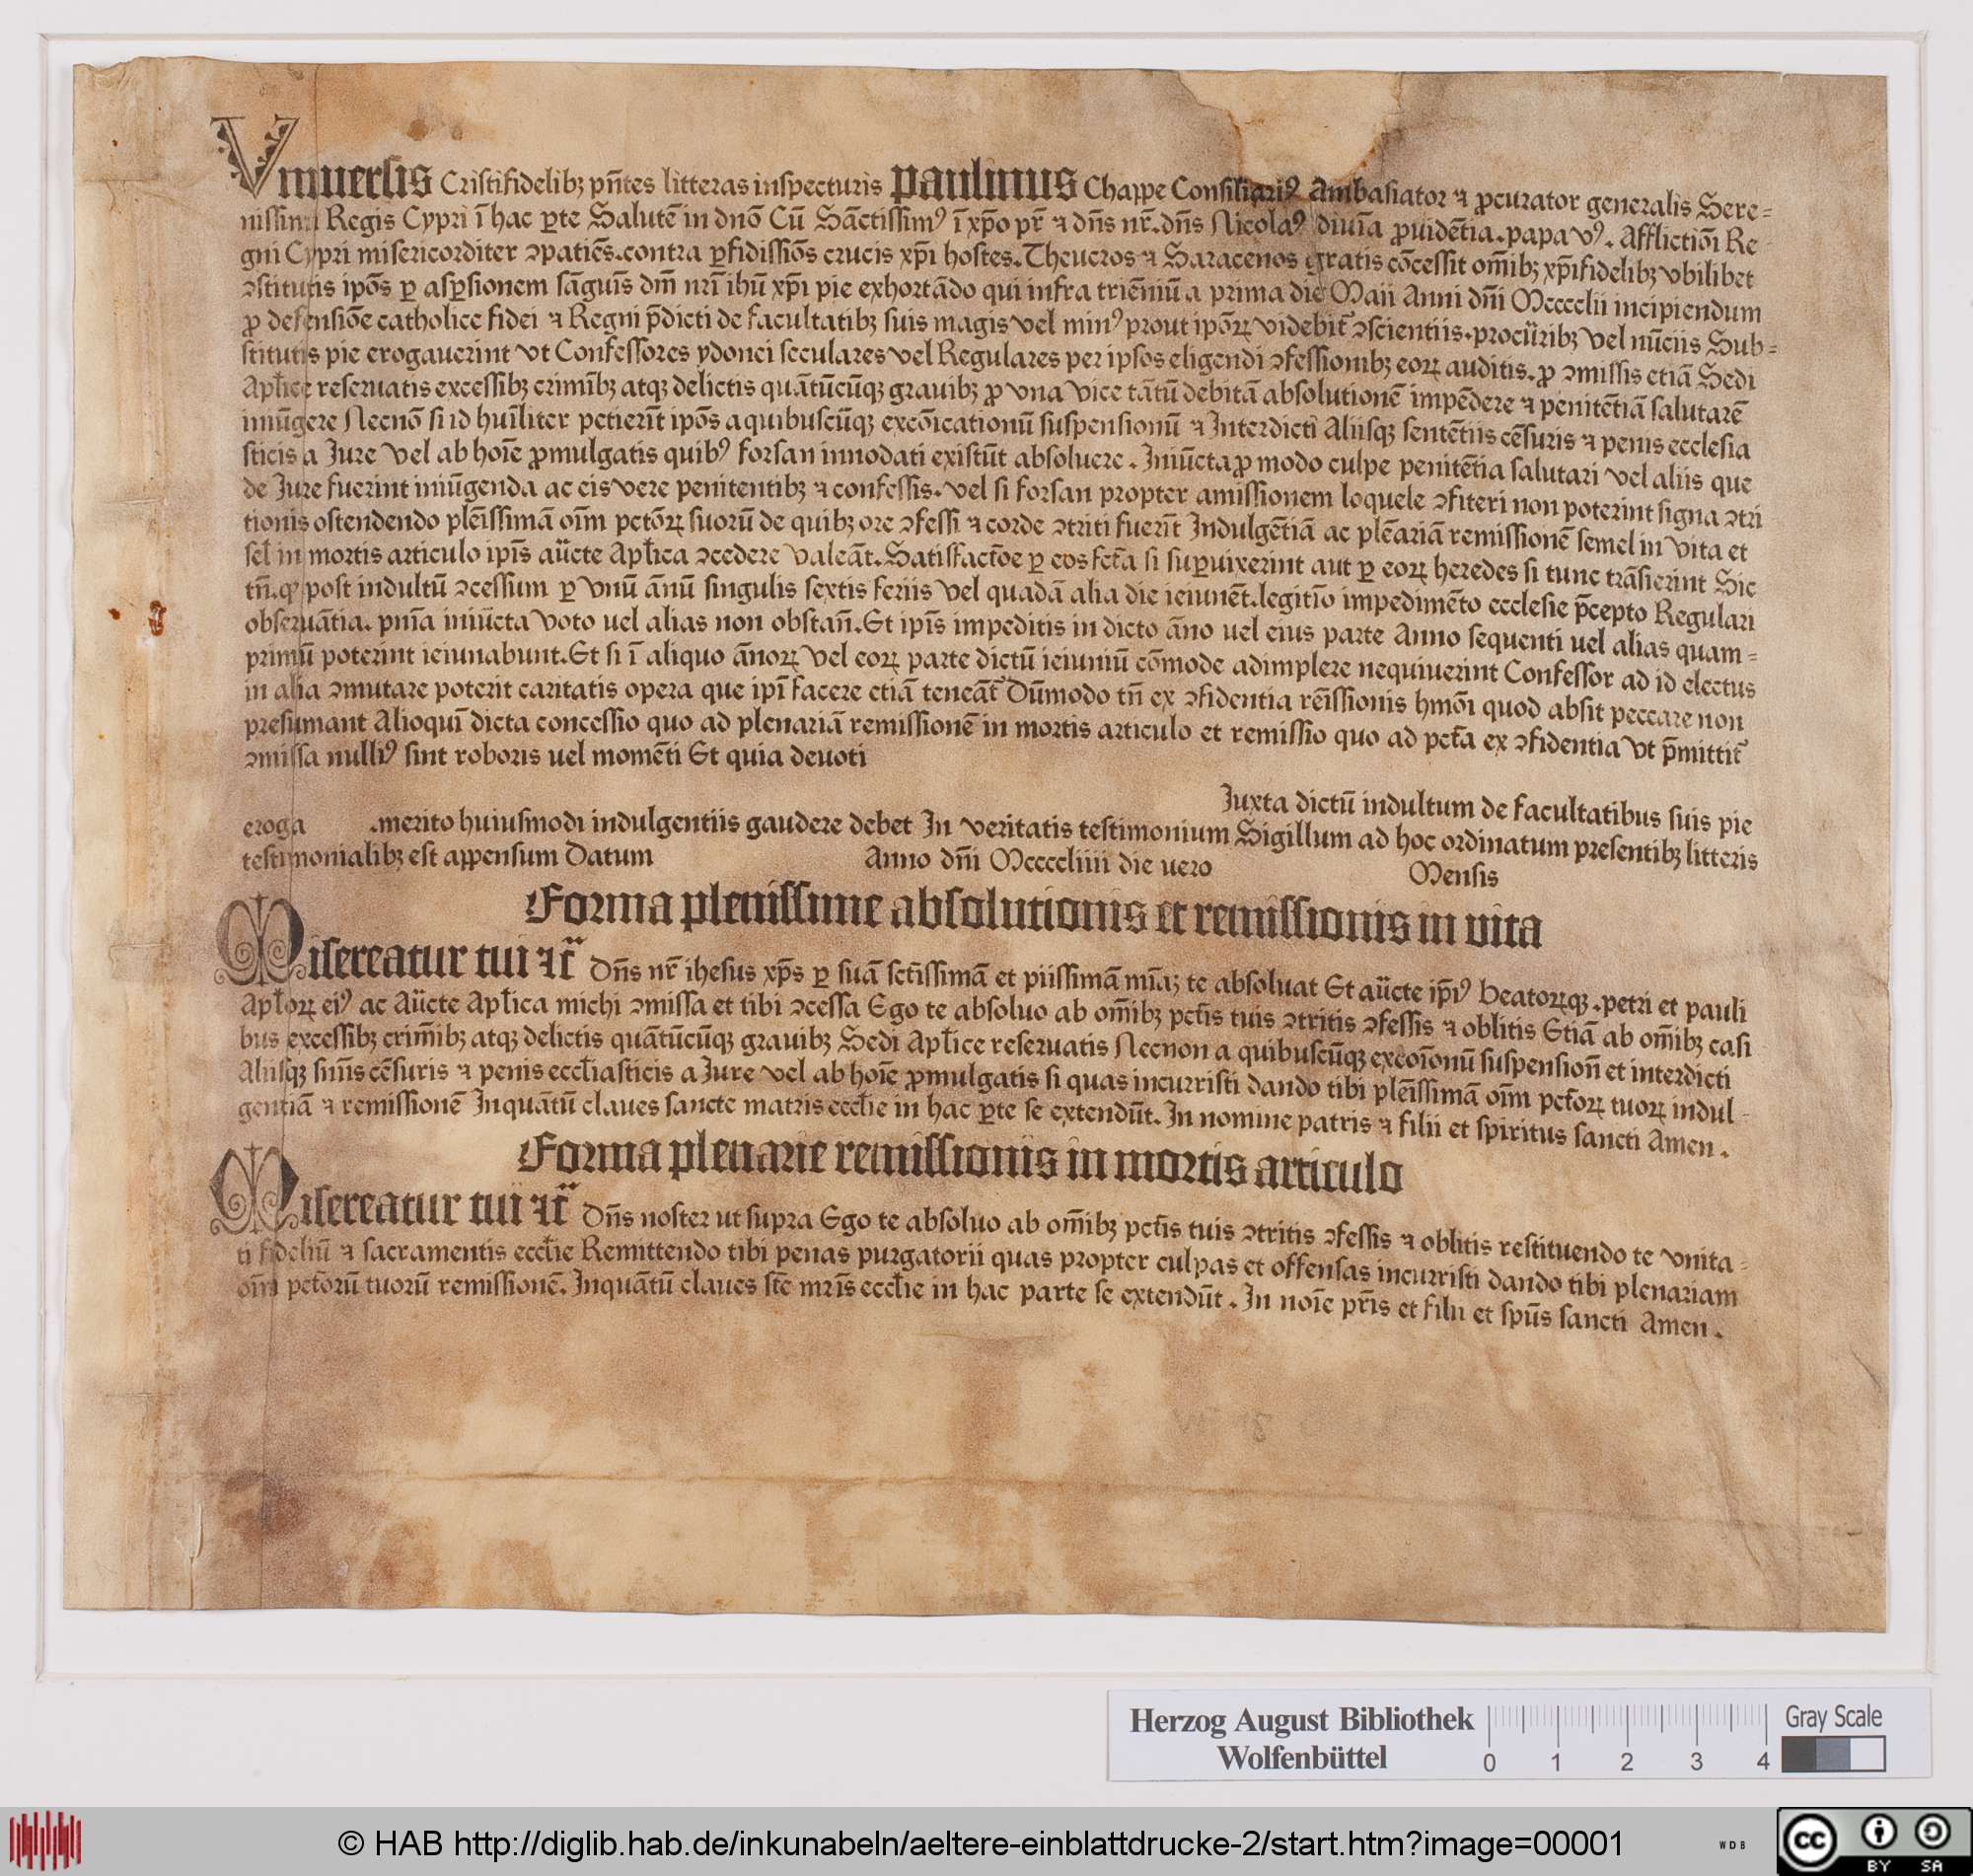 Vniuersis Cristifidelibꝫ pn̄tes litteras inspecturis Paulinus Chappe Consiliariꝰ Ambasiator ⁊ ꝓcurator generalis Sere⸗
nissimi Regis Cypri ī hac ꝑte Salutē in dnō Cū Sāctissimꝰ ī xp̄o pr̄ ⁊ dn̄s nr̄. dn̄s Nicolaꝰ diuīa ꝓuidētia. papa vꝰ. Afflictiōī Re⸗
gni Cypri misericorditer ꝯpatiēs. contra ꝑfidissiōs crucis xp̄i hostes. Theucros ⁊ Saracenos gratis cōcessit om̄ibꝫ xp̄ifidelibꝫ vbilibet
ꝯstitutis ipōs ꝑ aspꝑsionem sāguīs dm̄ nrī ihū xp̄i pie exhortādo qui infra trienniū a prima die Maii Anni dn̄i Mcccclii incipiendum
ꝓ defensiōe catholice fidei ⁊ Regni p̄dicti de facultatibꝫ suis magis vel minꝰ prout ipōꝝ videbit᷑ ꝯscientiis. procur̄ibꝫ vel nūciis Sub⸗
stitutis pie erogauerint vt Confessores ydonei seculares vel Regulares per ipsos eligendi ꝯfessionibꝫ eoꝝ auditis. ꝓ ꝯmissis etiā Sedi
Apl̄ice reseruatis excessibꝫ crimībꝫ atqꝫ delictis quātūcūqꝫ grauibꝫ ꝓ vna vice tātū debitā absolutionē impēdere ⁊ penitētiā salutarē
iniūgere Necnō si id huīliter petierīt ipōs a quibuscūqꝫ excōicationū suspensionū ⁊ Interdicti Aliisqꝫ sentētiis cēsuris ⁊ penis ecclesia
sticis a Iure vel ab hoīe ꝓmulgatis quibꝰ forsan innodati existūt absoluere. Iniūcta ꝓ modo culpe penitētia salutari vel aliis que
de Iure fuerint iniūgenda ac eis vere penitentibꝫ ⁊ confessis. vel si forsan propter amissionem loquele ꝯfiteri non poterint signa ꝯtri
tionis ostendendo plēissimā oīm pctōꝝ suorū de quibꝫ ore ꝯfessi ⁊ corde ꝯtriti fuerīt Indulgētiā ac plēariā remissionē semel in vita et
sel̄ in mortis articulo ipīs aūcte Apl̄ica ꝯcedere valeāt. Satisfactōe ꝑ eos fct̄a si suꝑuixerint aut ꝑ eoꝝ heredes si tunc trāsierint Sic
tn̄. ꝙ post indultū ꝯcessum ꝑ vnū ānū singulis sextis feriis vel quadā alia die ieiunēt. legitīo impedimēto ecclesie p̄cepto Regulari
obseruātia. pnīa iniūcta voto uel alias non obstan̄. Et ipīs impeditis in dicto āno uel eius parte Anno sequenti uel alias quam⸗
primū poterint ieiunabunt. Et si ī aliquo ānoꝝ vel eoꝝ parte dictū ieiuniū cōmode adimplere nequiuerint Confessor ad id electus
in alia ꝯmutare poterit caritatis opera que ipī facere etiā teneāt᷑ Dūmodo tn̄ ex ꝯfidentia rēissionis hmōi quod absit peccare non
presumant Alioquī dicta concessio quo ad plenariā remissionē in mortis articulo et remissio quo ad pct̄a ex ꝯfidentia vt p̄mittit᷑
ꝯmissa nulliꝰ sint roboris uel momēti Et quia deuoti
Iuxta dictū indultum de facultatibus suis pie
eroga .merito huiusmodi indulgentiis gaudere debet In veritatis testimonium Sigillum ad hoc ordinatum presentibꝫ litteris
testimonialibꝫ est appensum Datum Anno dn̄i Mccccliiii die uero Mensis
Forma plenissime absolutionis et remissionis in vita
Misereatur tui ⁊c̄ Dn̄s nr̄ ihesus xp̄s ꝑ suā sct̄issimā et piissimā mīaꝫ te absoluat Et aūcte ip̄iꝰ beatoꝝqꝫ. petri et pauli
Apl̄oꝝ eiꝰ ac Aūcte Apl̄ica michi ꝯmissa et tibi ꝯcessa Ego te absoluo ab om̄ibꝫ pct̄is tuis ꝯtritis ꝯfessis ⁊ oblitis Etiā ab om̄ibꝫ casi
bus excessibꝫ crim̄ibꝫ atqꝫ delictis quātūcūqꝫ grauibꝫ Sedi Apl̄ice reseruatis Necnon a quibuscūqꝫ excoīonū suspension̄ et interdicti
Aliisqꝫ snīis cēsuris ⁊ penis eccl̄iasticis a Iure vel ab hoīe ꝓmulgatis si quas incurristi dando tibi plēissimā oīm pct̄oꝝ tuoꝝ indul⸗
gentiā ⁊ remissionē Inquātū claues sancte matris eccl̄ie in hac ꝑte se extendūt. In nomine patris ⁊ filii et spiritus sancti Amen.
Forma plenarie remissionis in mortis articulo
Misereatur tui ⁊c̄ Dn̄s noster ut supra Ego te absoluo ab om̄ibꝫ pct̄is tuis ꝯtritis ꝯfessis ⁊ oblitis restituendo te vnita⸗
ti fideliū ⁊ sacramentis eccl̄ie Remittendo tibi penas purgatorii quas propter culpas et offensas incurristi dando tibi plenariam
oīm pct̄orū tuorū remissionē. Inquātū claues st̄e mr̄is eccl̄ie in hac parte se extendūt. In noīe pr̄is et filii et spūs sancti Amen.
Herzog August Bibliothek
Wolfenbüttel
0 1 2 3 4
Gray Scale
© HAB http://diglib.hab.de/inkunabeln/aeltere-einblattdrucke-2/start.htm?image=00001
WDB
cc BY SA